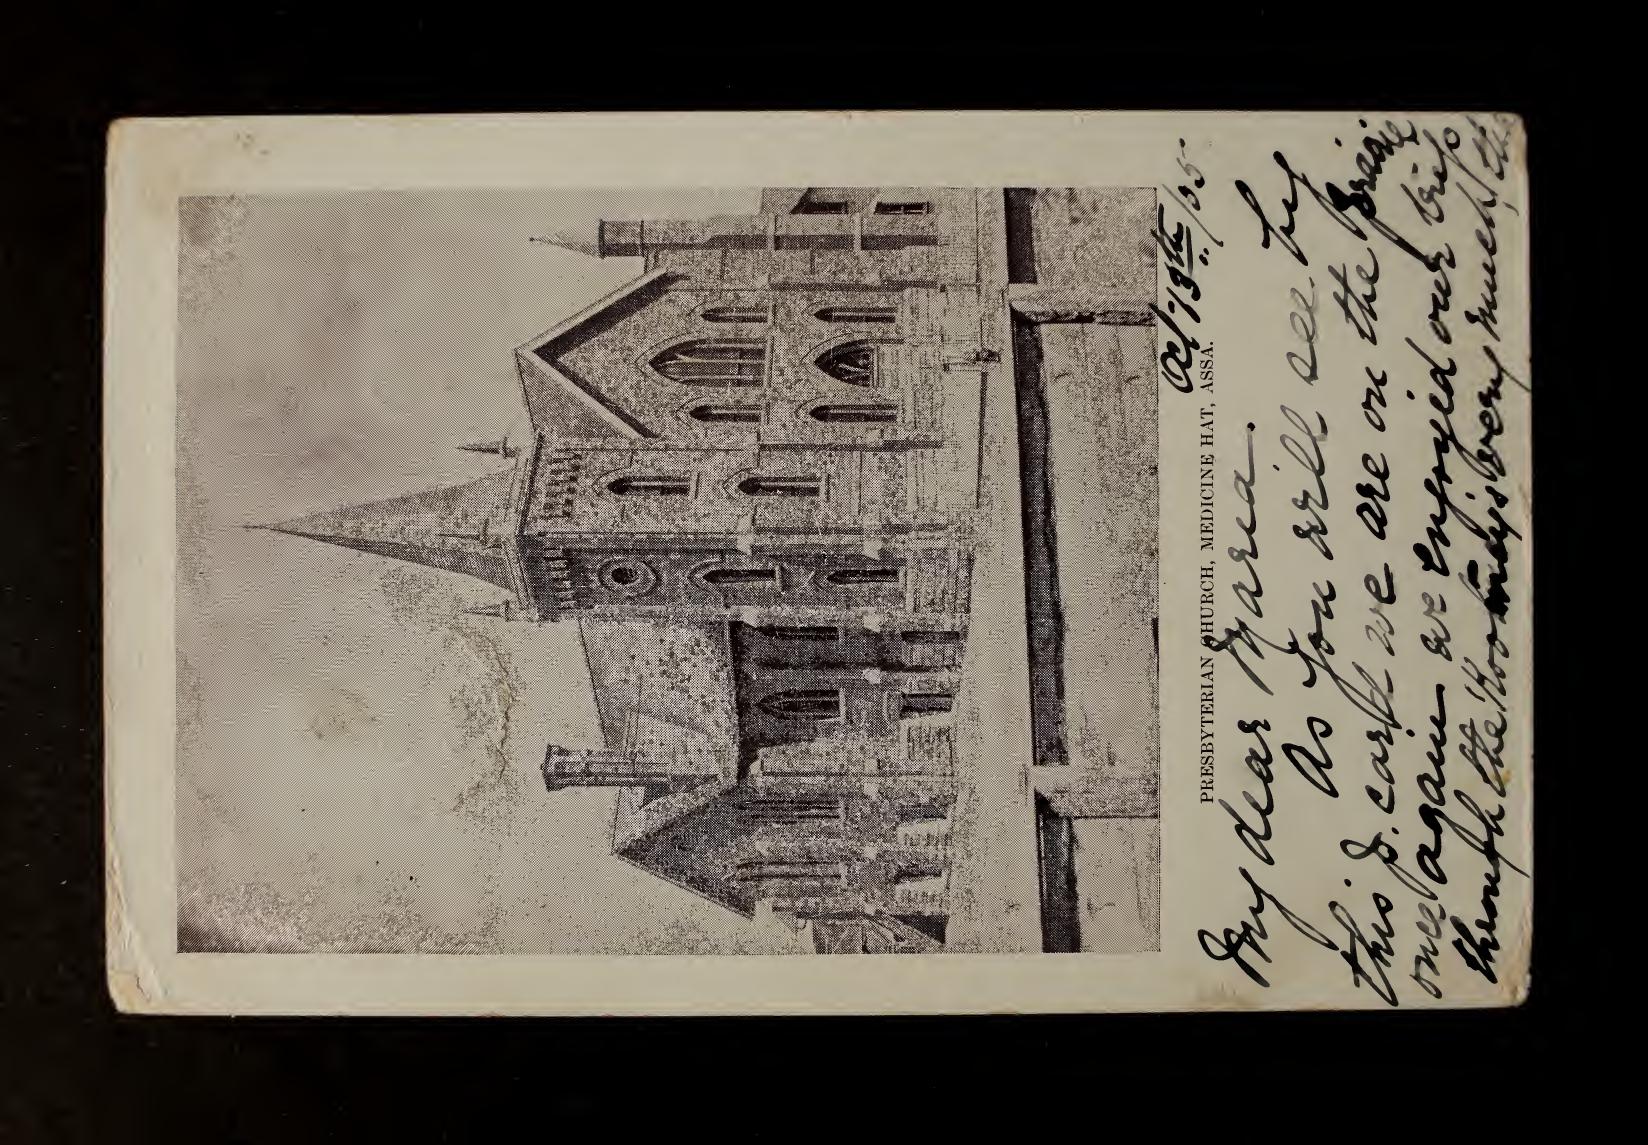 PRESBYTERIAN CHURCH, MEDICINE HAT, ASSA.
Oct 13th /05
My dear Maria.
As you will see by
this P. card we are on the Prairie
once again we enjoyed our trip
through the very much, the